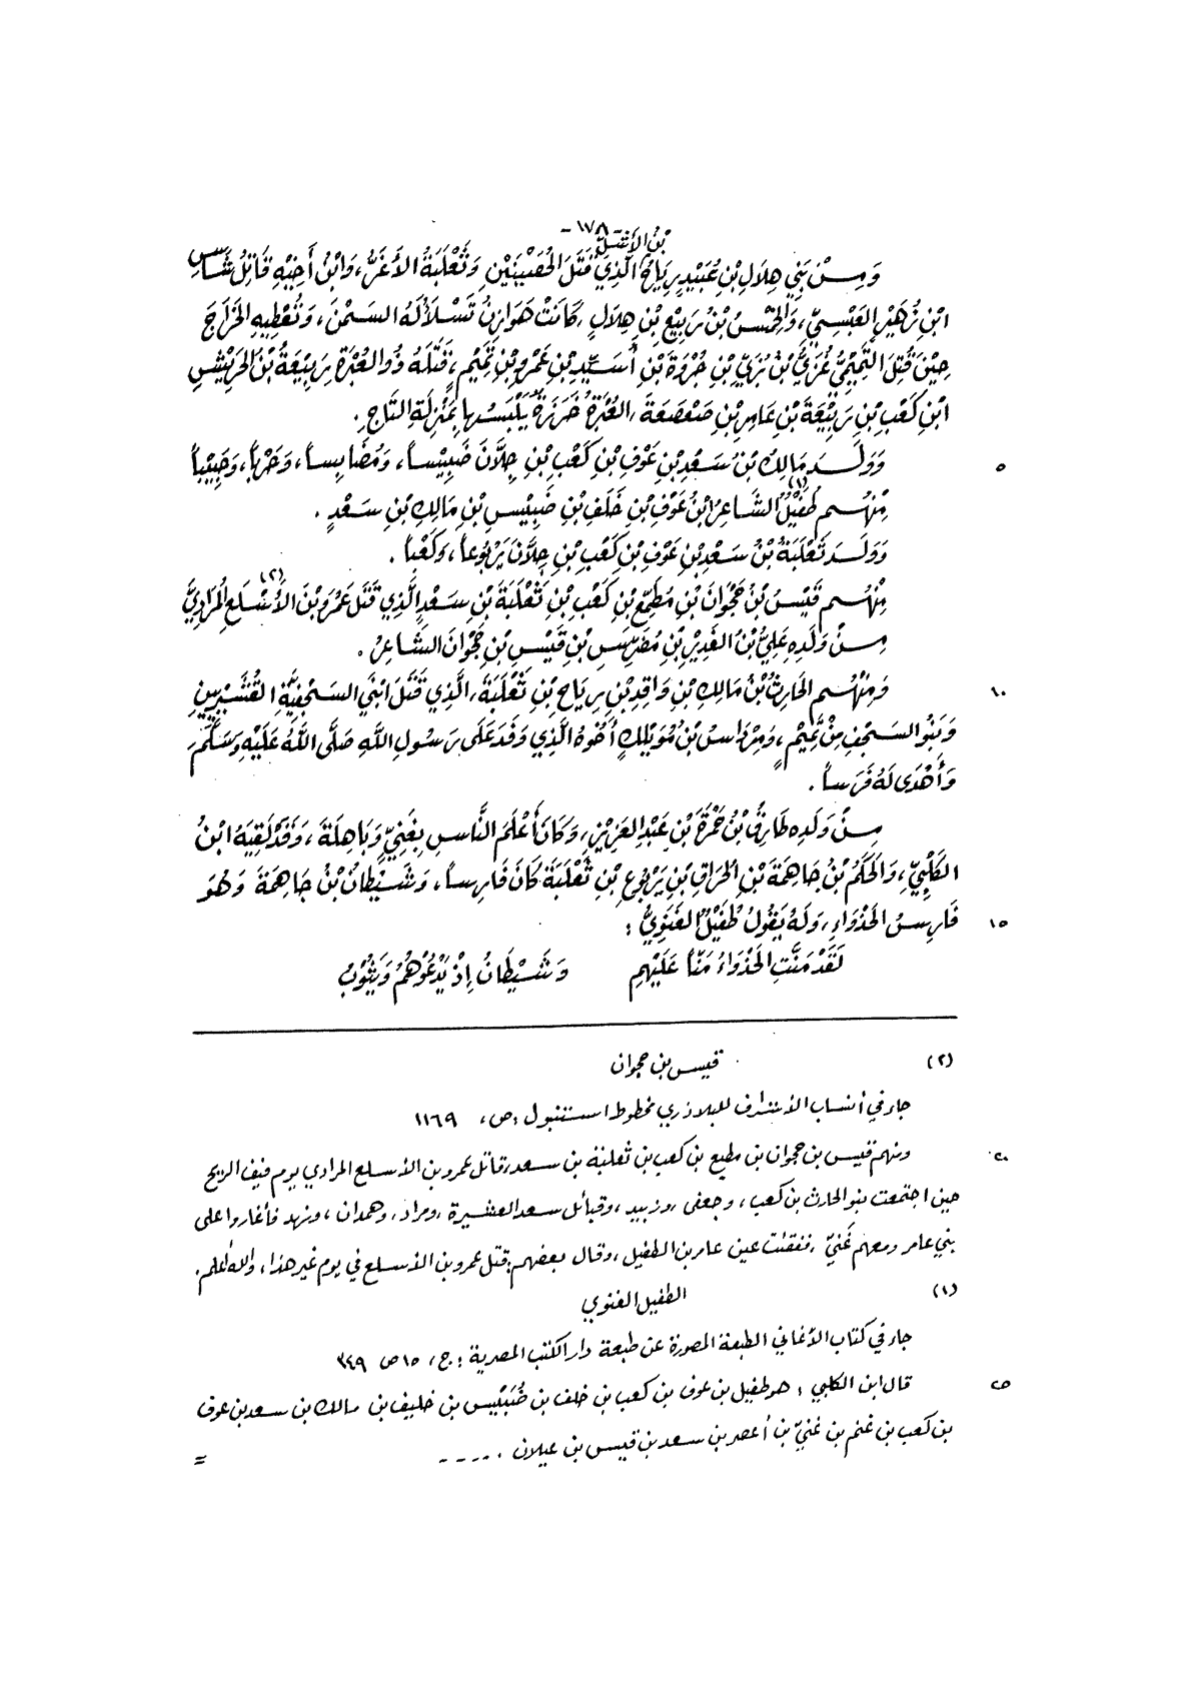 - ١٧٨ -
بْنُ الأَشَلِّ
وَمِنْ بَنِي هِلَالِ بْنِ عُبَيْدٍ رِيَاحٌ الَّذِي قَتَلَ الحُصَيْنَيْنِ وَثَعْلَبَةُ الأَغَرُّ، وَابْنُ أَخِيْهِ قَاتِلُ شَاسِ
ابْنِ زُهَيْرٍ العَبْسِيِّ، وَالحِمْسُ بْنُ رَبِيْعِ بْنِ هِلَالٍ، كَانَتْ هَوَازِنُ تَسْلَأُ لَهُ السَّمْنَ، وَتُعْطِيهِ الخَرَاجَ
حِيْنَ قُتِلَ التَّمِيْمِيُّ غُزَيُّ بْنُ بُزَيِّ بْنِ جُرْوَةَ بْنِ أُسَيِّدِ بْنِ عَمْرِو بْنِ تَمِيْمٍ، قَتَلَهُ ذُو العُبْرَةِ رَبِيْعَةُ بْنُ الحَرِيْشِ
ابْنِ كَعْبِ بْنِ رَبِيْعَةَ بْنِ عَامِرِ بْنِ صَعْصَعَةَ، العُبْرَةُ خَرَزَةٌ يَلْبَسُهَا بِمَنْزِلَةِ التَّاجِ.
وَوَلَدَ مَالِكُ بْنُ سَعْدِ بْنِ عَوْفِ بْنِ كَعْبِ بْنِ جِلَّانَ ضَبِيْساً، وَمُضَابِساً، وَحَرْباً، وَحَبِيْباً ٥
مِنْهُم طُفَيْلٌ (١) الشَّاعِرُ ابْنُ عَوْفِ بْنِ خَلَفِ بْنِ ضَبِيْسِ بْنِ مَالِكِ بْنِ سَعْدٍ.
وَوَلَدَ ثَعْلَبَةُ بْنُ سَعْدِ بْنِ عَوْفِ بْنِ كَعْبِ بْنِ جِلَّانَ يَرْبُوعاً، وَكَعْباً.
مِنْهُم قَيْسُ بْنُ حَجْوَانَ بْنِ مُطِيْعِ بْنِ كَعْبِ بْنِ ثَعْلَبَةَ بْنِ سَعْدٍ الَّذِي قَتَلَ عَمْرَو بْنَ الأَسْلَعِ (٢) المُرَادِيَّ
مِنْ وَلَدِهِ عَلِيُّ بْنُ الغَدِيْرِ بْنِ مُضَرِّسِ بْنِ قَيْسِ بْنِ حَجْوَانَ الشَّاعِرُ.
وَمِنْهُم الحَارِثُ بْنُ مَالِكِ بْنِ وَاقِدِ بْنِ رِيَاحِ بْنِ ثَعْلَبَةَ، الَّذِي قَتَلَ ابْنَي السَّجْفِيَّةِ القُشَيْرِيَّيْنِ ١٠
وَبَنُو السَّجْفِ مِنْ تَمِيْمٍ، وَمِرْدَاسُ بْنُ مُوَيْلِكٍ أَخُوهُ الَّذِي وَفَدَ عَلَى رَسُولِ اللَّهِ صَلَّى اللَّهُ عَلَيْهِ وَسَلَّمَ
وَأَهْدَى لَهُ فَرَساً.
مِنْ وَلَدِهِ طَارِقُ بْنُ حَمْزَةَ بْنِ عَبْدِ العَزِيْزِ، وَكَانَ أَعْلَمَ النَّاسِ بِغَنِيٍّ وَبَاهِلَةَ، وَقَدْ لَقِيَهُ ابْنُ
الكَلْبِيِّ، وَالحَكَمُ بْنُ جَاهِمَةَ بْنِ الحَرَاقِ بْنِ يَرْبُوعِ بْنِ ثَعْلَبَةَ كَانَ فَارِساً، وَشَيْطَانُ بْنُ جَاهِمَةَ وَهُوَ
فَارِسُ الخَذْوَاءِ، وَلَهُ يَقُولُ طُفَيْلٌ الغَنَوِيُّ: ١٥
لَقَدْ مَنَّتِ الخَذْوَاءُ مَنّاً عَلَيْهِمِ وَشَيْطَانُ إِذْ يَدْعُوهُمُ وَيُثَوِّبُ
(٢) قيس بن حجوان
جاء في أنساب الأشراف للبلاذري مخطوط استنبول: ص، ١١٦٩
ومنهم قيس بن حجوان بن مطيع بن كعب بن ثعلبة بن سعد، قاتل عمرو بن الأسلع المرادي يوم فيف الريح ٢٠
حين اجتمعت بنو الحارث بن كعب، وجعفى، وزبيد، وقبائل سعد العشيرة، ومراد، وهمدان، ونهد فأغاروا على
بني عامر ومعهم غَنِيّ، ففقئت عين عامر بن الطفيل، وقال بعضهم: قتل عمرو بن الأسلع في يوم غير هذا، والله أعلم.
(١) الطفيل الغنوي
جاء في كتاب الأغاني الطبعة المصورة عن طبعة دار الكتب المصرية: ج، ١٥ ص ٣٤٩
قال ابن الكلبي: هو طفيل بن عوف بن كعب بن خلف بن ضُبَيْس بن خليف بن مالك بن سعد بن عوف ٢٥
بن كعب بن غنم بن غنيّ بن أعصر بن سعد بن قيس بن عيلان . ....
=